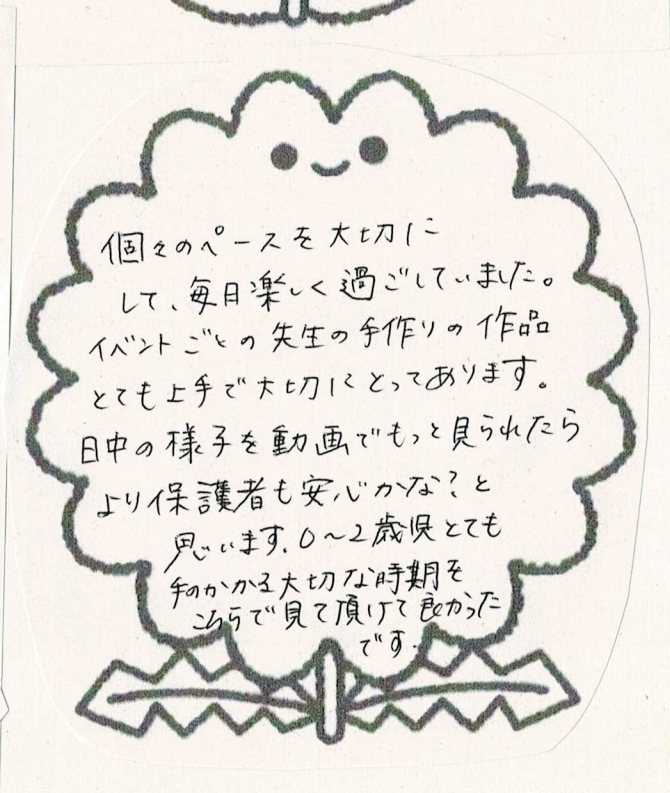 個々のペースを大切に
して、毎日楽しく過ごしていました。
イベントごとの先生の手作りの作品
とても上手で大切にとってあります。
日中の様子を動画でもっと見られたら
より保護者も安心かな？と
思います。0〜2歳児とても
手のかかる大切な時期を
こちらで見て頂けて良かった
です.